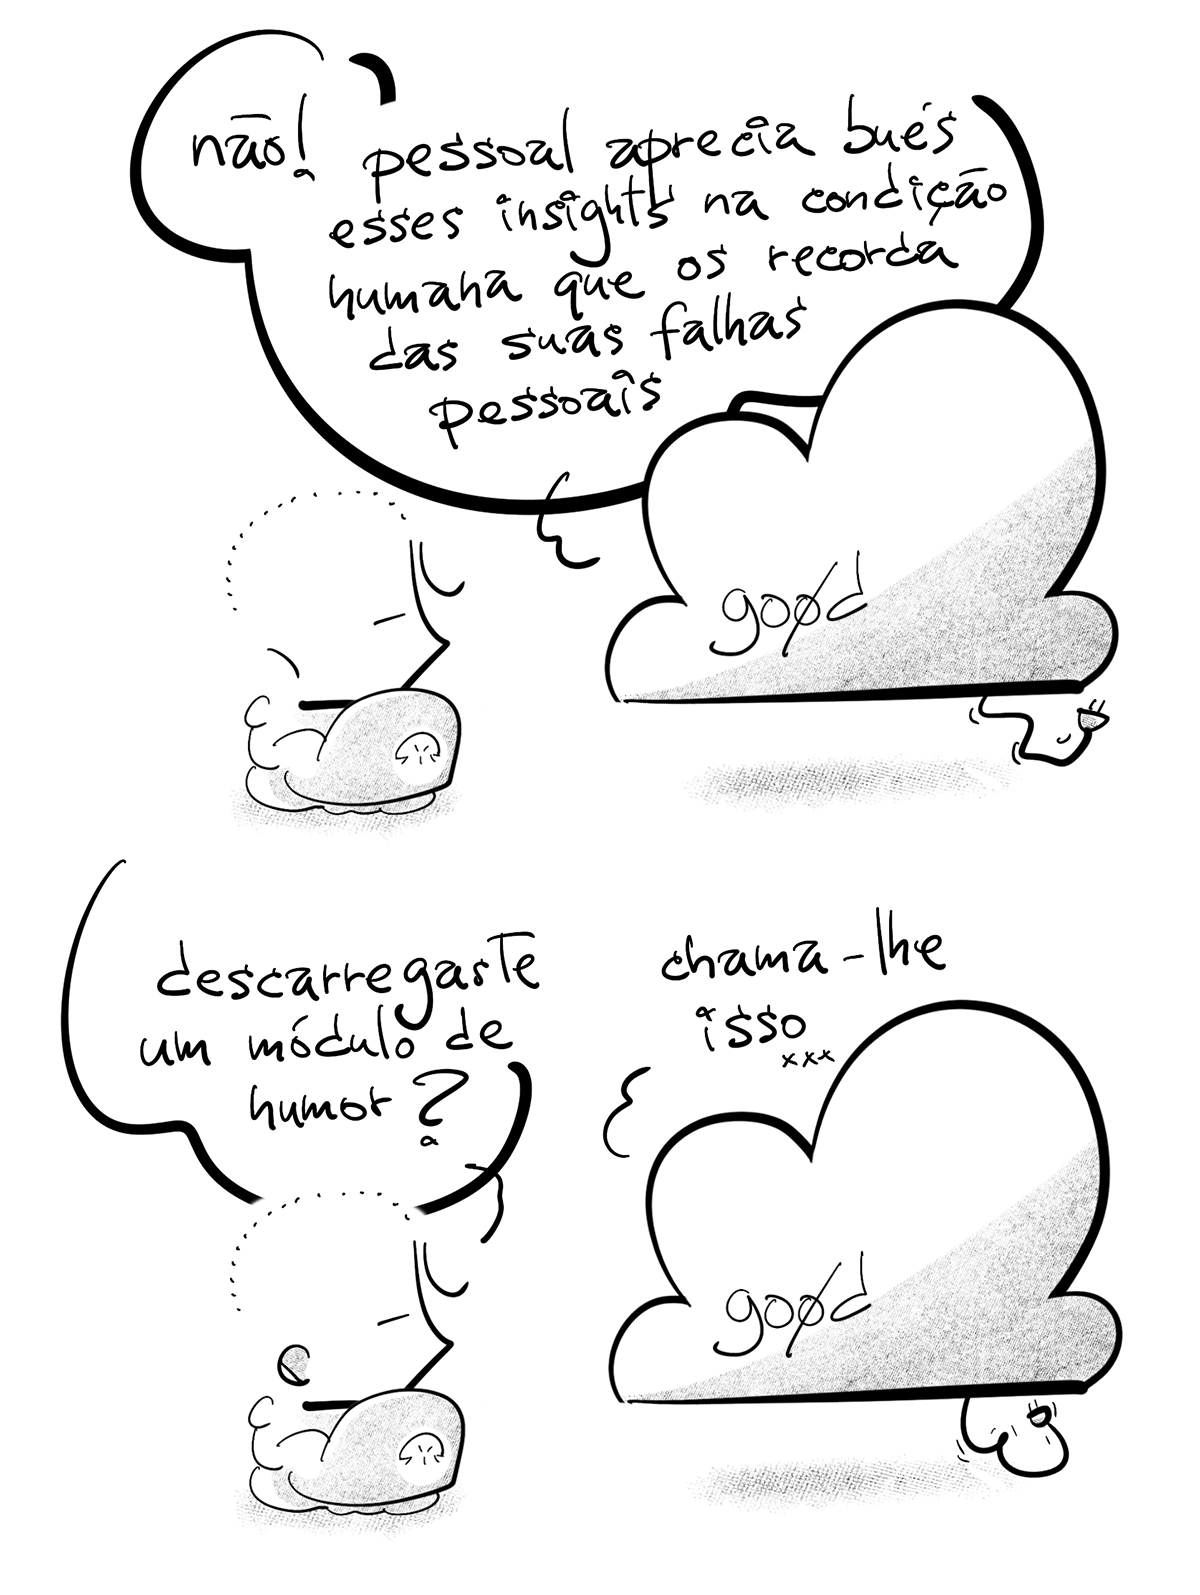 não! pessoal aprecia bués
esses insights na condição
humana que os recorda
das suas falhas
pessoais
goød
descarregaste
um módulo de
humor?
chama-lhe
isso
xxx
goød